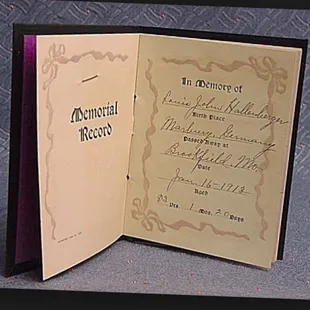 Memorial
Record
In Memory of
Louis John Hallenberger
Birth Place
Marburg, Germany
Passed Away at
Brookfield, Mo.
Date
Jan 16 - 1913
Aged
83 Yrs. 1 Mos. 20 Days